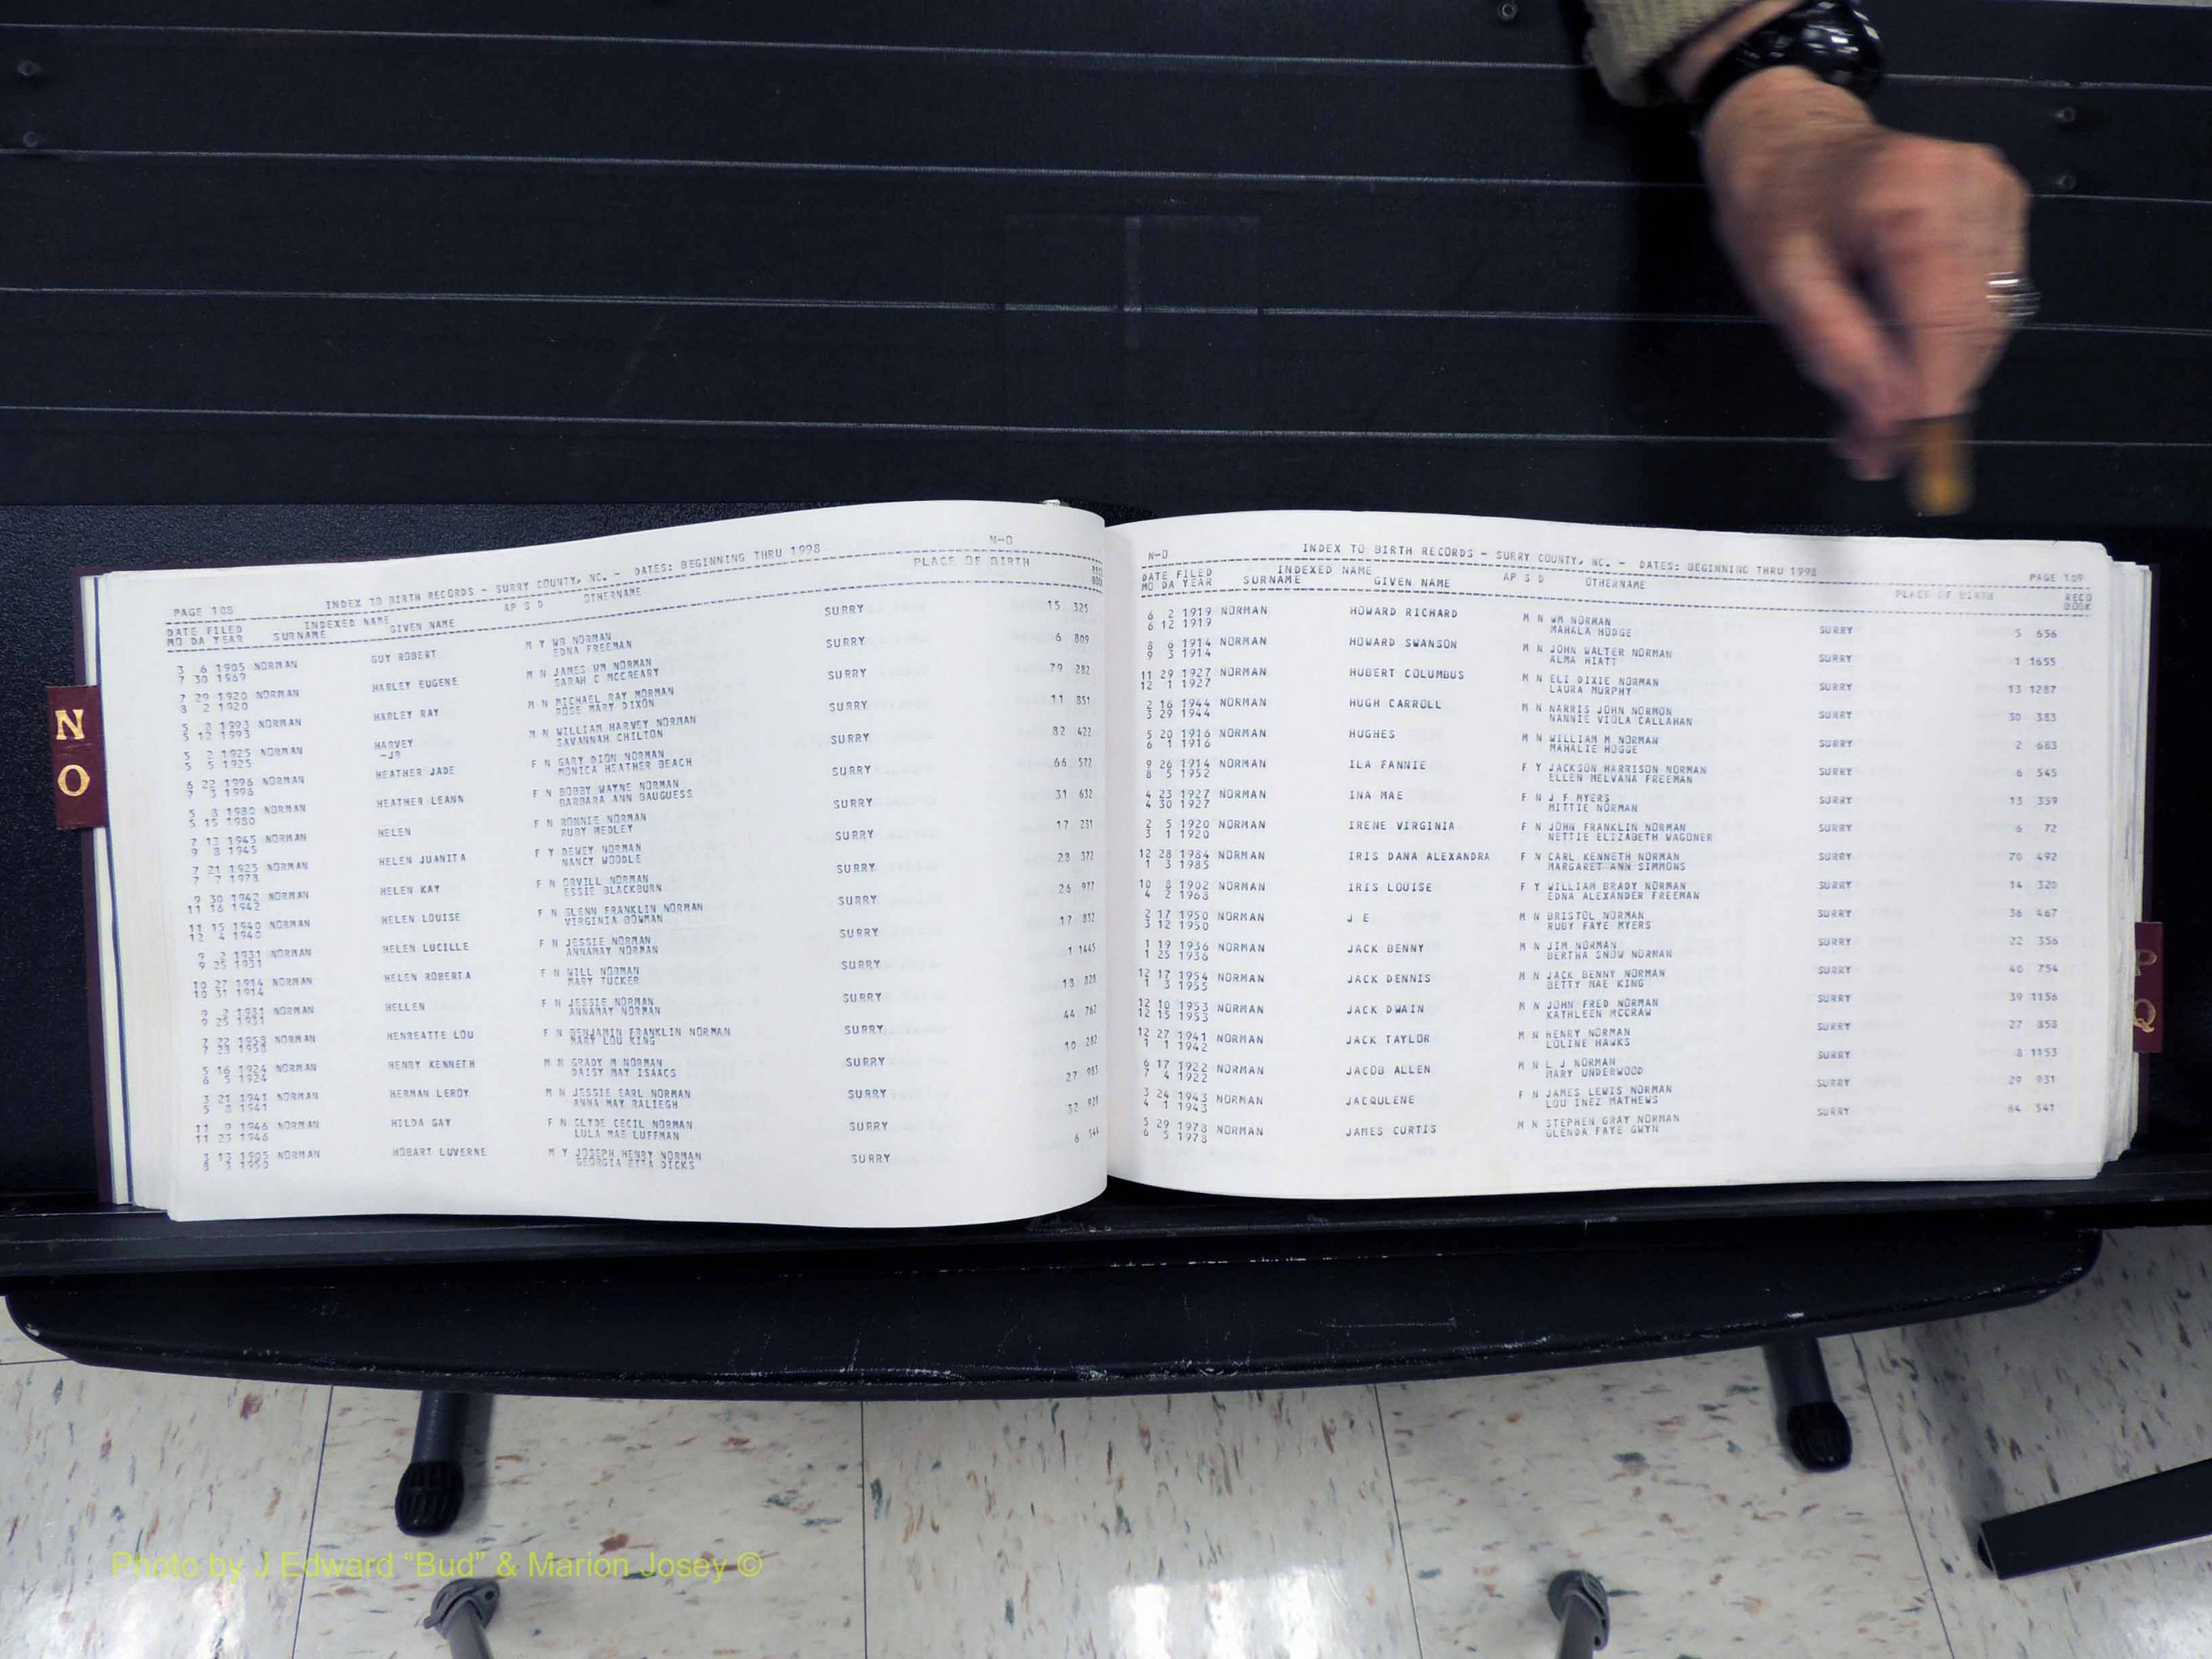 PAGE 108 INDEX TO BIRTH RECORDS - SURRY COUNTY, NC. - DATES: BEGINNING THRU 1998 N-O
DATE FILED INDEXED NAME AP S D OTHERNAME PLACE OF BIRTH
MO DA YEAR SURNAME GIVEN NAME
3 6 1905 NORMAN GUY ROBERT M Y WB NORMAN SURRY 15 325
7 30 1969 EDNA FREEMAN
7 29 1920 NORMAN HARLEY EUGENE M N JAMES WM NORMAN SURRY 6 809
8 2 1920 SARAH C MCCREARY
5 8 1993 NORMAN HARLEY RAY M N MICHAEL RAY NORMAN SURRY 79 282
5 12 1993 ROSE MARY DIXON
5 2 1925 NORMAN HARVEY M N WILLIAM HARVEY NORMAN SURRY 11 851
5 5 1925 -JR SAVANNAH CHILTON
6 22 1996 NORMAN HEATHER JADE F N GARY DION NORMAN SURRY 82 422
7 3 1996 MONICA HEATHER BEACH
5 8 1980 NORMAN HEATHER LEANN F N BOBBY WAYNE NORMAN SURRY 66 572
5 15 1980 BARBARA ANN BAUGUESS
7 13 1945 NORMAN HELEN F N RONNIE NORMAN SURRY 31 632
9 8 1945 RUBY MEDLEY
7 21 1925 NORMAN HELEN JUANITA F Y DEWEY NORMAN SURRY 17 231
7 7 1978 NANCY WOODLE
9 30 1942 NORMAN HELEN KAY F N ORVILL NORMAN SURRY 28 372
11 16 1942 ESSIE BLACKBURN
11 15 1940 NORMAN HELEN LOUISE F N GLENN FRANKLIN NORMAN SURRY 26 977
12 4 1940 VIRGINIA BOWMAN
9 2 1931 NORMAN HELEN LUCILLE F N JESSIE NORMAN SURRY 17 832
9 25 1931 ANNAMAY NORMAN
10 27 1914 NORMAN HELEN ROBERTA F N WILL NORMAN SURRY 1 1445
10 31 1914 MARY TUCKER
9 2 1931 NORMAN HELLEN F N JESSIE NORMAN SURRY 18 828
9 25 1931 ANNAMAY NORMAN
7 22 1958 NORMAN HENREATTE LOU F N BENJAMIN FRANKLIN NORMAN SURRY 44 762
7 28 1958 MARY LOU KING
5 16 1924 NORMAN HENRY KENNETH M N GRADY M NORMAN SURRY 10 282
6 5 1924 DAISY MAY ISAACS
3 21 1941 NORMAN HERMAN LEROY M N JESSIE EARL NORMAN SURRY 27 981
5 8 1941 ANNA MAY RALIEGH
11 9 1946 NORMAN HILDA GAY F N CLYDE CECIL NORMAN SURRY 32 921
11 23 1946 LULA MAE LUFFMAN
3 13 1905 NORMAN HOBART LUVERNE M Y JOSEPH HENRY NORMAN SURRY 6 544
8 3 1950 GEORGIA ETTA DICKS
N-O INDEX TO BIRTH RECORDS - SURRY COUNTY, NC. - DATES: BEGINNING THRU 1998 PAGE 109
DATE FILED INDEXED NAME AP S D OTHERNAME PLACE OF BIRTH RECD
MO DA YEAR SURNAME GIVEN NAME BOOK
6 2 1919 NORMAN HOWARD RICHARD M N WM NORMAN SURRY 5 656
6 12 1919 MAHALA HODGE
8 6 1914 NORMAN HOWARD SWANSON M N JOHN WALTER NORMAN SURRY 1 1655
9 3 1914 ALMA HIATT
11 29 1927 NORMAN HUBERT COLUMBUS M N ELI DIXIE NORMAN SURRY 13 1287
12 1 1927 LAURA MURPHY
2 16 1944 NORMAN HUGH CARROLL M N NARRIS JOHN NORMON SURRY 30 383
3 29 1944 NANNIE VIOLA CALLAHAN
5 20 1916 NORMAN HUGHES M N WILLIAM M NORMAN SURRY 2 683
6 1 1916 MAHALIE HOGGE
9 26 1914 NORMAN ILA FANNIE F Y JACKSON HARRISON NORMAN SURRY 6 545
8 5 1952 ELLEN MELVANA FREEMAN
4 23 1927 NORMAN INA MAE F N J F MYERS SURRY 13 359
4 30 1927 MITTIE NORMAN
2 5 1920 NORMAN IRENE VIRGINIA F N JOHN FRANKLIN NORMAN SURRY 6 72
3 1 1920 NETTIE ELIZABETH WAGONER
12 28 1984 NORMAN IRIS DANA ALEXANDRA F N CARL KENNETH NORMAN SURRY 70 492
1 3 1985 MARGARET ANN SIMMONS
10 8 1902 NORMAN IRIS LOUISE F Y WILLIAM BRADY NORMAN SURRY 14 320
4 2 1968 EDNA ALEXANDER FREEMAN
2 17 1950 NORMAN J E M N BRISTOL NORMAN SURRY 36 467
3 12 1950 RUBY FAYE MYERS
1 19 1936 NORMAN JACK BENNY M N JIM NORMAN SURRY 22 356
1 25 1936 BERTHA SNOW NORMAN
12 17 1954 NORMAN JACK DENNIS M N JACK BENNY NORMAN SURRY 40 754
1 3 1955 BETTY MAE KING
12 10 1953 NORMAN JACK DWAIN M N JOHN FRED NORMAN SURRY 39 1156
12 15 1953 KATHLEEN MCCRAW
12 27 1941 NORMAN JACK TAYLOR M N HENRY NORMAN SURRY 27 358
1 1 1942 LOLINE HAWKS
6 17 1922 NORMAN JACOB ALLEN M N L J NORMAN SURRY 8 1153
7 4 1922 MARY UNDERWOOD
3 24 1943 NORMAN JACQULENE F N JAMES LEWIS NORMAN SURRY 29 931
4 1 1943 LOU INEZ MATHEWS
5 29 1978 NORMAN JAMES CURTIS M N STEPHEN GRAY NORMAN SURRY 64 541
6 5 1978 GLENDA FAYE GWYN
N
O
Q
Photo by J Edward "Bud" & Marion Josey ©